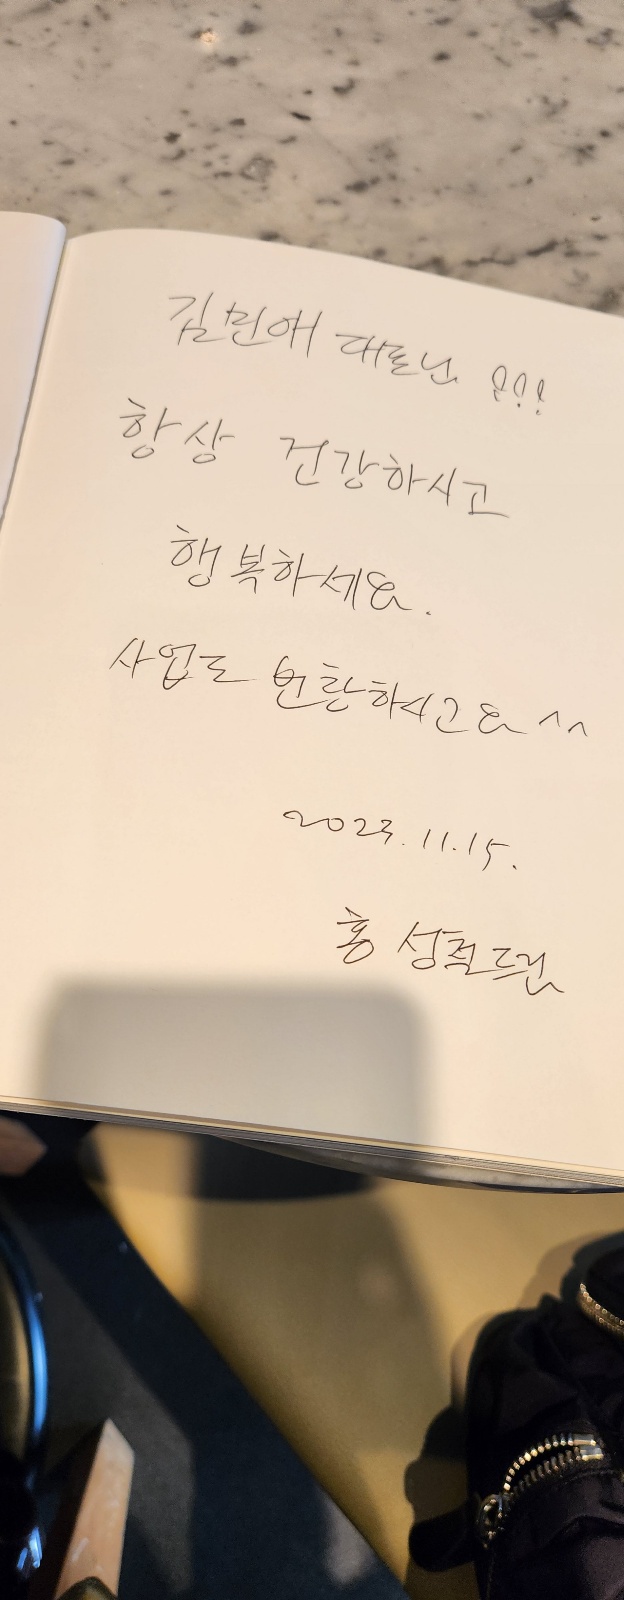 김민애 대표님 !!!
항상 건강하시고
행복하세요.
사업도 번창하시고요 ^^
2023. 11. 15.
홍성철 드림